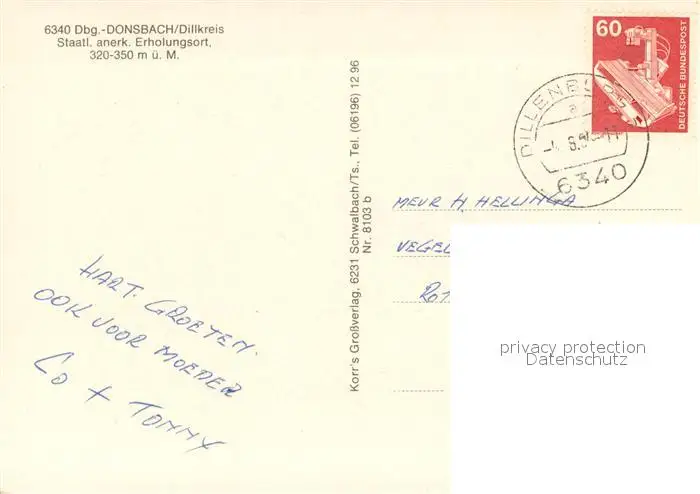 6340 Dbg.-DONSBACH/Dillkreis
Staatl. anerk. Erholungsort,
320-350 m ü. M.
HART. GROETEN.
OOK VOOR MOEDER
CO + TOMMY
Korr's Großverlag, 6231 Schwalbach/Ts., Tel. (06196) 12 96
Nr. 8103 b
60
DEUTSCHE BUNDESPOST
6340
MEVR H. HELLINGA
privacy protection
Datenschutz